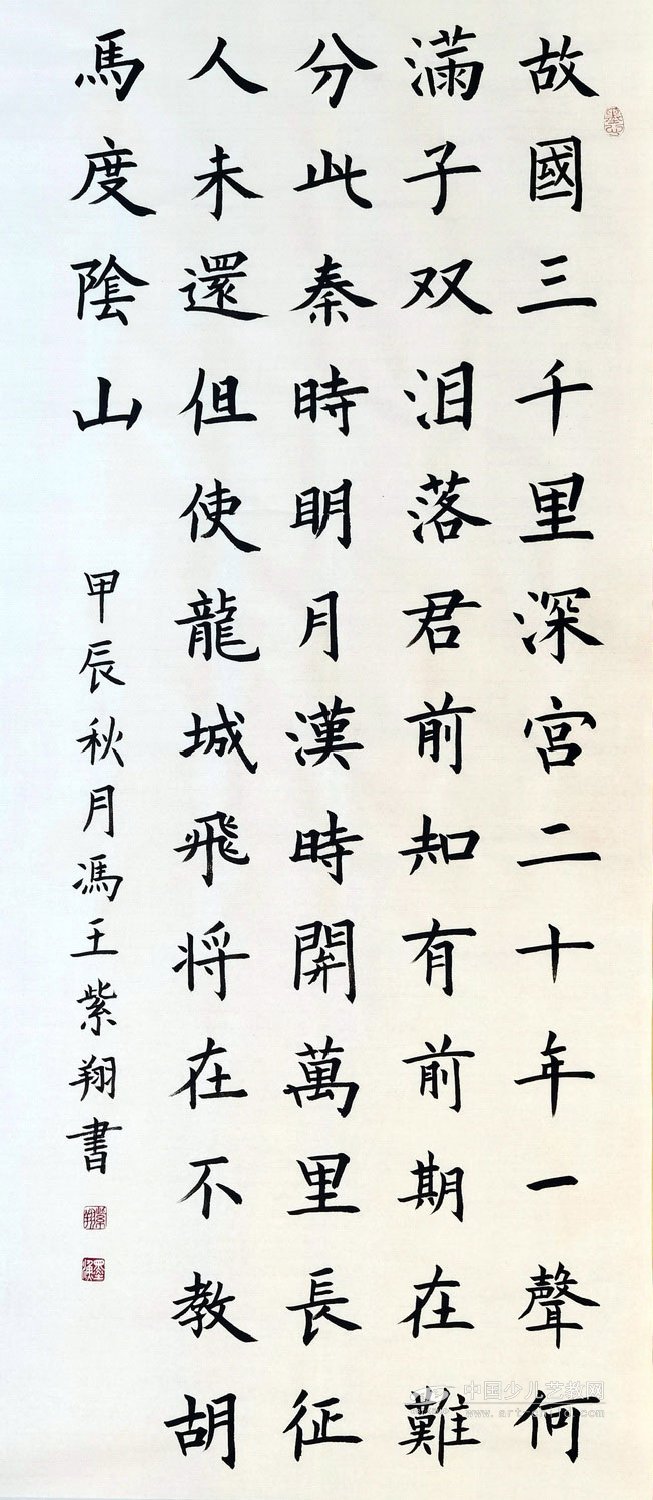 故國三千里深宮二十年一聲何
滿子双泪落君前知有前期在難
分此秦時明月漢時開萬里長征
人未還但使龍城飛将在不教胡
馬度陰山
甲辰秋月馮王紫翔書
中国少儿艺教网